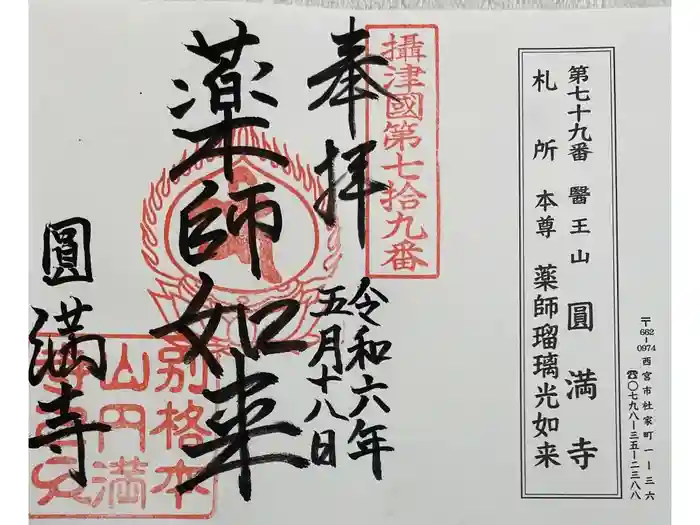 〒662-0974 西宮市社家町一ー三六
☎〇七九八ー三五ー二三八八
第七十九番 醫王山 圓満寺
札所本尊 薬師瑠璃光如来
攝津國第七拾九番
奉拝
令和六年
五月十八日
薬師如来
圓満寺
別格本
山円満